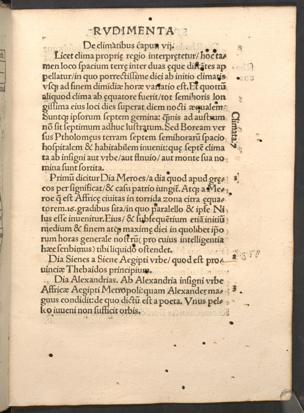 RVDIMENTA
De climatibus caput vij.
Licet clima proprie regio interpretetur/hoc ta
men loco spacium terre inter duas eque distantes ap
pellatur/in quo porrectissime diei ab initio climatis
vsq; ad finem dimidiae horae variatio est. Et quotus
aliquod clima ab equatore fuerit/tot semihoris lon
gissima eius loci dies superat diem nocti aequalem
Suntq; ipsorum septem gemina: quinis ad austrum
non sit septimum adhuc lustratum. Sed Boream ver
sus Ptholomeus terram septem semihorarum spacio
hospitalem & habitabilem inuenit: que septem clima
ta ab insigni aut vrbe/aut fluuio/aut monte sua no
mina sunt sortita.
Climata 7
Primum dicitur Dia Meroes/a dia quod apud gre
cos per significat/& casu patrio iungitur. Atq; a Me
roe quae est Affrice ciuitas in torrida zona citra equa
torem.16. gradibus sita/in quo parallelo & ipse Ni
lus esse inuenitur. Eius/& subsequentium etiam initium
medium & finem atq; maxime diei in quolibet ipo
rum horas generale nostrum (pro cuius intelligentia
haec scribimus) tibi liquido ostendet.
Dia Sienes a Siene Aegipti vrbe/quod est pro
uinciae Thebaidos principium.
Dia Alexandrias. Ab Alexandria insigni vrbe
Affricae Aegipti Metropoli: quam Alexander ma
gnus condidit: de quo dictum est a poeta. Vnus pel
leo iuueni non sufficit orbis.